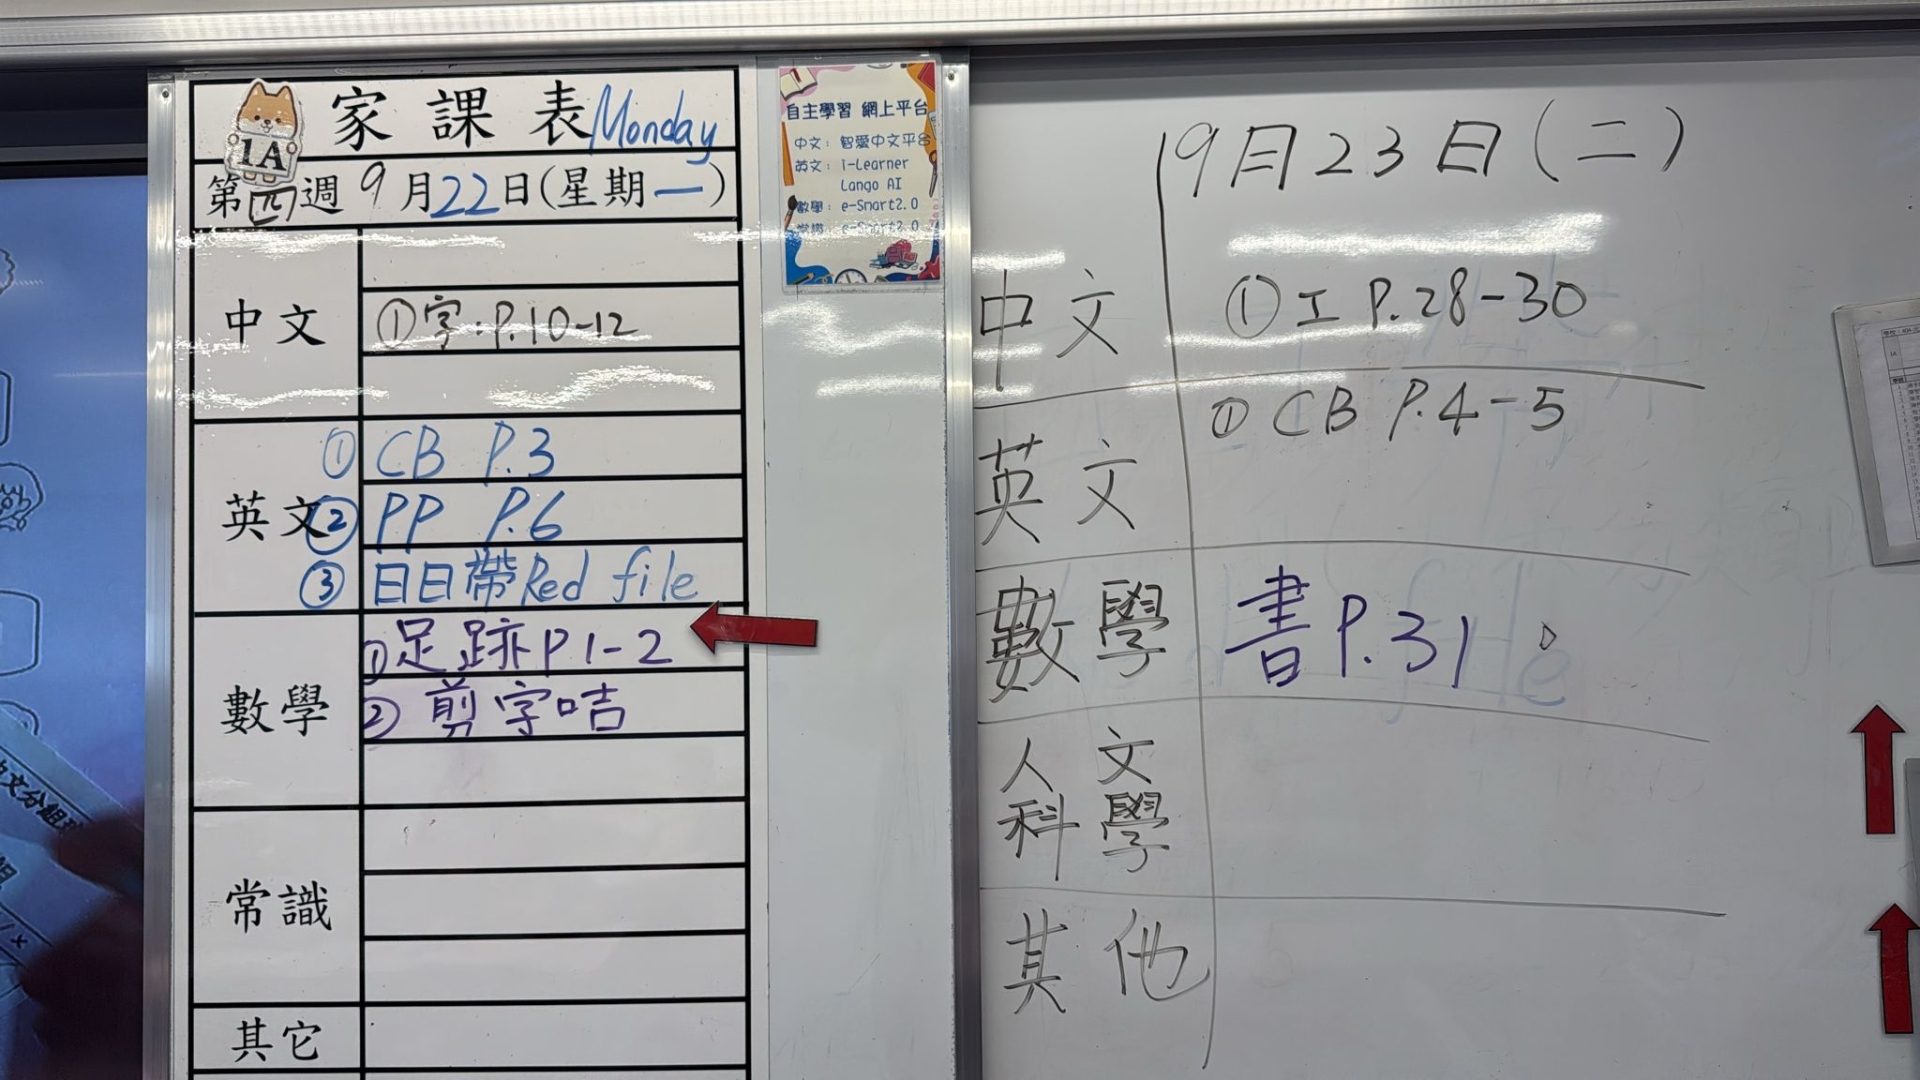 家課表 Monday
1A
第四週 9月22日(星期一)
中文
①字.P.10-12
英文
① CB P.3
② PP P.6
③ 日日帶Red file
數學
①足跡P1-2
②剪字咭
常識
其它
自主學習 網上平台
中文：智愛中文平台
英文：i-Learner
Lango AI
數學：e-Smart2.0
常識：e-Smart2.0
9月23日(二)
中文
①工P.28-30
英文
①CB P.4-5
數學
書P.31
人文
科學
其他